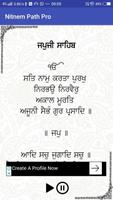 4G 08:05
Nitnem Path Pro
ਜਪੁਜੀ ਸਾਹਿਬ
ੴ
ਸਤਿ ਨਾਮੁ ਕਰਤਾ ਪੁਰਖੁ
ਨਿਰਭਉ ਨਿਰਵੈਰੁ
ਅਕਾਲ ਮੂਰਤਿ
ਅਜੂਨੀ ਸੈਭੰ ਗੁਰ ਪ੍ਰਸਾਦਿ ॥
॥ ਜਪੁ ॥
ਆਦਿ ਸਚੁ ਜੁਗਾਦਿ ਸਚੁ ॥
Create A Profile Now